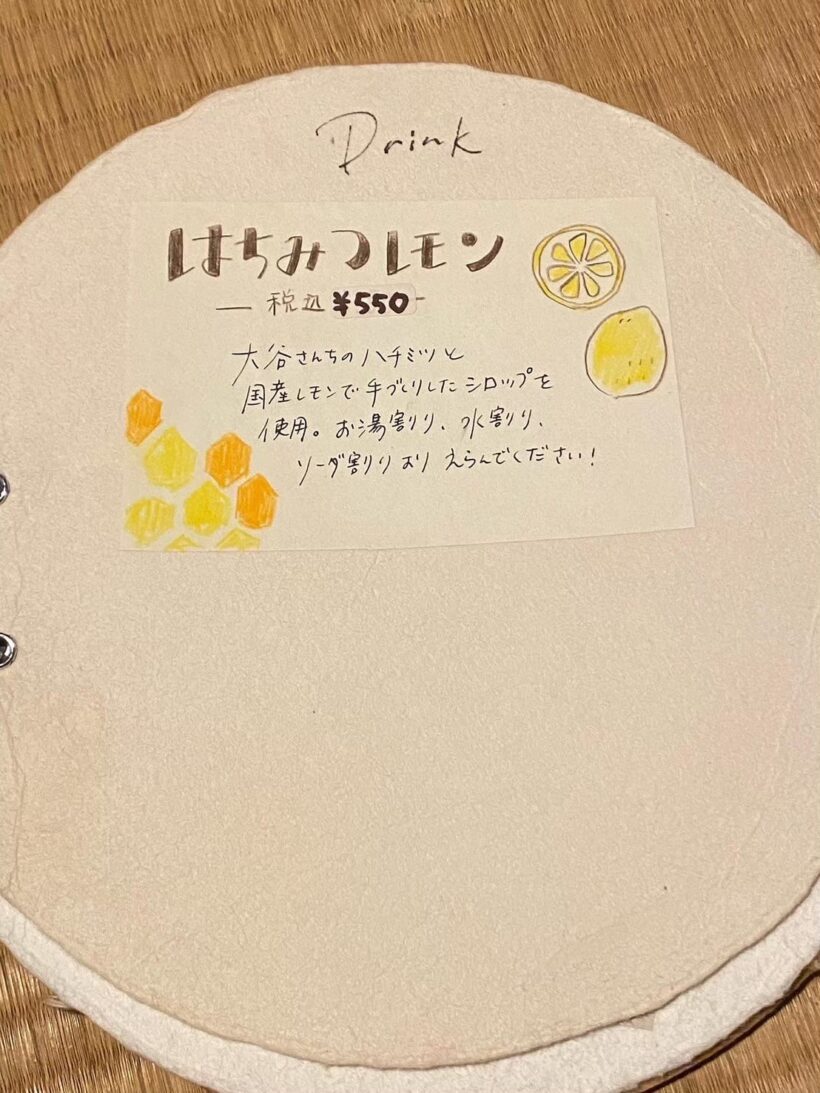 Drink
はちみつレモン
― 税込 ¥550 -
大谷さんちのハチミツと
国産レモンで手づくりしたシロップを
使用。お湯割り、水割り、
ソーダ割りよりえらんでください!